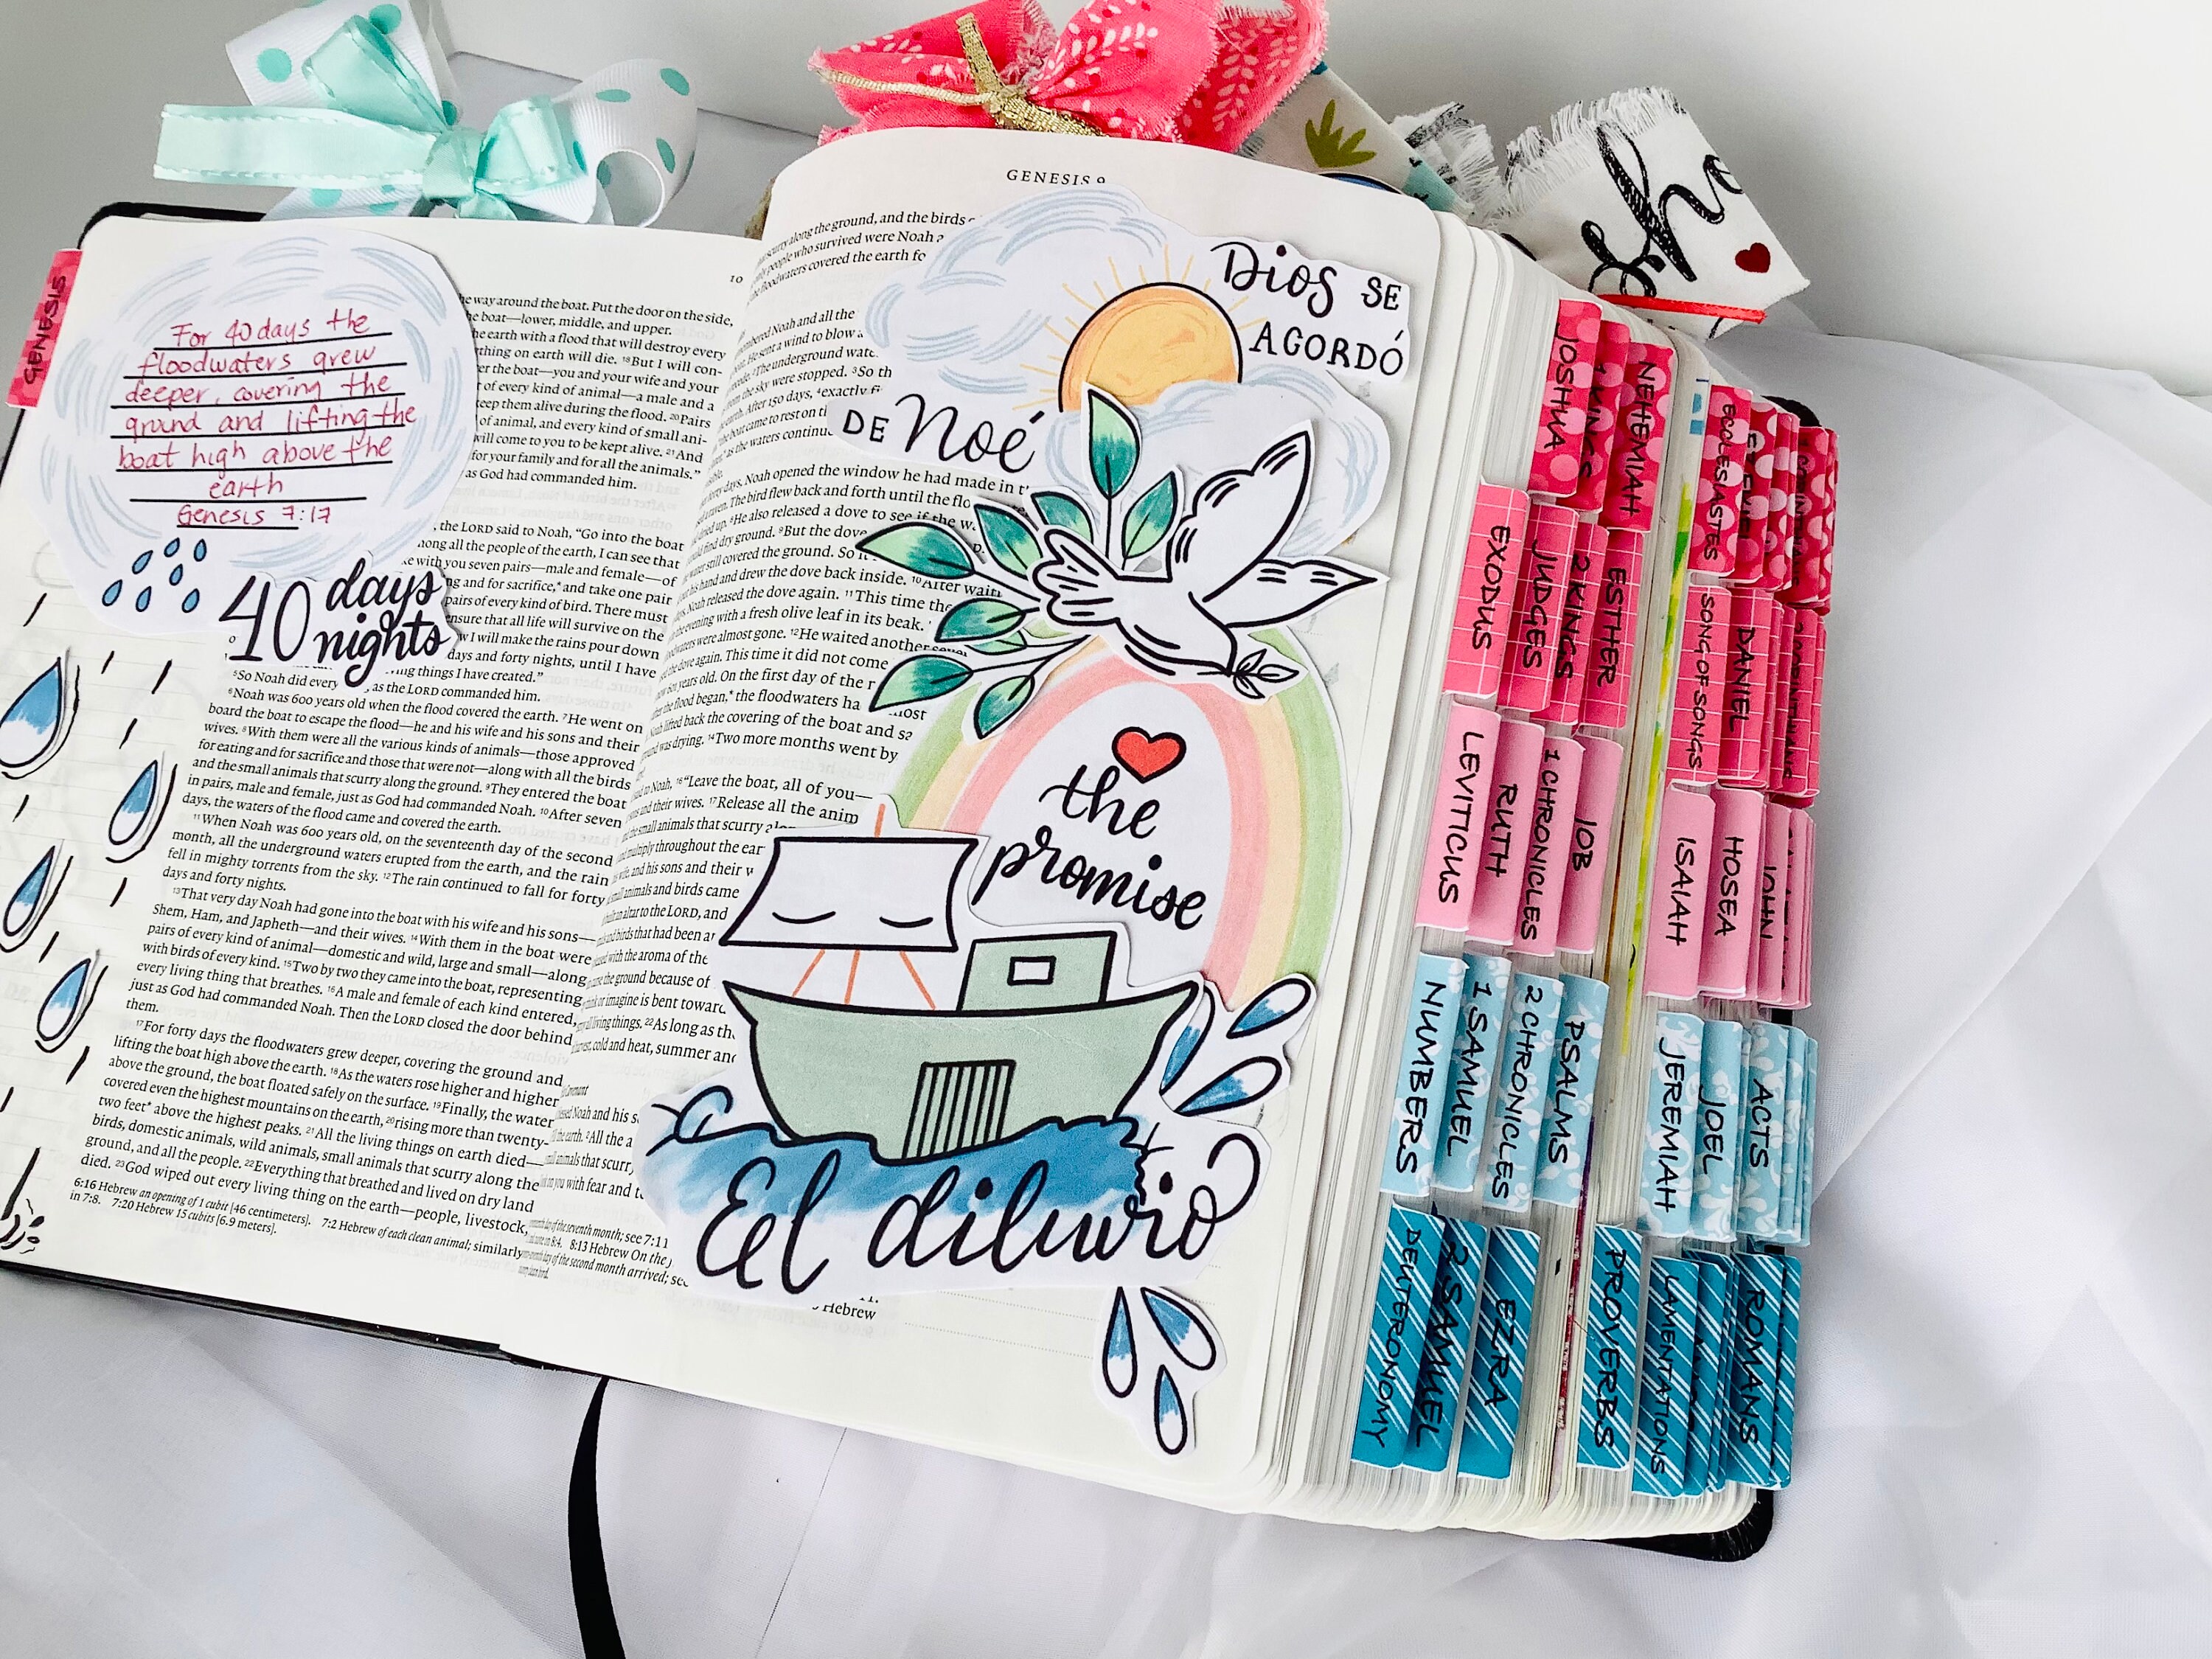 GENESIS
For 40 days the
floodwaters grew
deeper, covering the
grund and lifting the
boat high above the
earth
Genesis 7:17
40 days
nights
10
he way around the boat. Put the door on the side,
he boat—lower, middle, and upper.
he earth with a flood that will destroy every
thing on earth will die. 18But I will con-
er the boat—you and your wife and your
of every kind of animal—a male and a
keep them alive during the flood. 20Pairs
of animal, and every kind of small ani-
will come to you to be kept alive. 21And
for your family and for all the animals.”
as God had commanded him.
, the LORD said to Noah, “Go into the boat
mong all the people of the earth, I can see that
ke with you seven pairs—male and female—of
ng and for sacrifice,* and take one pair
pairs of every kind of bird. There must
ensure that all life will survive on the
w I will make the rains pour down
days and forty nights, until I have
ving things I have created.”
5So Noah did every as the LORD commanded him.
6Noah was 600 years old when the flood covered the earth. 7He went on
board the boat to escape the flood—he and his wife and his sons and their
wives. 8With them were all the various kinds of animals—those approved
for eating and for sacrifice and those that were not—along with all the birds
and the small animals that scurry along the ground. 9They entered the boat
in pairs, male and female, just as God had commanded Noah. 10After seven
days, the waters of the flood came and covered the earth.
11When Noah was 600 years old, on the seventeenth day of the second
month, all the underground waters erupted from the earth, and the rain
fell in mighty torrents from the sky. 12The rain continued to fall for forty
days and forty nights.
13That very day Noah had gone into the boat with his wife and his sons—
Shem, Ham, and Japheth—and their wives. 14With them in the boat were
pairs of every kind of animal—domestic and wild, large and small—along
with birds of every kind. 15Two by two they came into the boat, representing
every living thing that breathes. 16A male and female of each kind entered,
just as God had commanded Noah. Then the LORD closed the door behind
them.
17For forty days the floodwaters grew deeper, covering the ground and
lifting the boat high above the earth. 18As the waters rose higher and higher
above the ground, the boat floated safely on the surface. 19Finally, the water
covered even the highest mountains on the earth, 20rising more than twenty-
two feet* above the highest peaks. 21All the living things on earth died—
birds, domestic animals, wild animals, small animals that scurry along the
ground, and all the people. 22Everything that breathed and lived on dry land
died. 23God wiped out every living thing on the earth—people, livestock,
6:16 Hebrew an opening of 1 cubit [46 centimeters]. 7:2 Hebrew of each clean animal; similarly
in 7:8. 7:20 Hebrew 15 cubits [6.9 meters].
GENESIS 9
scurry along the ground, and the birds
people who survived were Noah
floodwaters covered the earth fo
Noah and all the
He sent a wind to blow
The underground wat
from the sky were stopped. 3So th
earth. After 150 days, 4exactly fi
the boat came to rest on
as the waters continu
forty days, Noah opened the window he had made in
a raven. The bird flew back and forth until the flo
dried up. 8He also released a dove to see if the wa
find dry ground. 9But the dove
water still covered the ground. So
his hand and drew the dove back inside. 10After wait
Noah released the dove again. 11This time the
evening with a fresh olive leaf in its beak.
floodwaters were almost gone. 12He waited another seven
the dove again. This time it did not come
years old. On the first day of the
the flood began,* the floodwaters ha most
lifted back the covering of the boat and sa
was drying. 14Two more months went by
to Noah, 16“Leave the boat, all of you—
and their wives. 17Release all the anim
small animals that scurry
multiply throughout the ear
wife, and his sons and their
animals and birds came
altar to the LORD, and
birds that had been
with the aroma of the
the ground because of
or imagine is bent toward
all living things. 22As long as the
harvest, cold and heat, summer and
blessed Noah and his s
the earth. 2All the a
animals that scurry
on you with fear and
day of the seventh month; see 7:11
8:4. 8:13 Hebrew On the
day of the second month arrived; see
Hebrew
Dios SE
ACORDÓ
DE Noé
the
promise
El diluvio
JOSHUA
1 KINGS
NEHEMIAH
ECCLESIASTES
EXODUS
JUDGES
2 KINGS
ESTHER
SONG OF SONGS
DANIEL
LEVITICUS
RUTH
1 CHRONICLES
JOB
ISAIAH
HOSEA
JOHN
NUMBERS
1 SAMUEL
2 CHRONICLES
PSALMS
JEREMIAH
JOEL
ACTS
DEUTERONOMY
2 SAMUEL
EZRA
PROVERBS
LAMENTATIONS
ROMANS